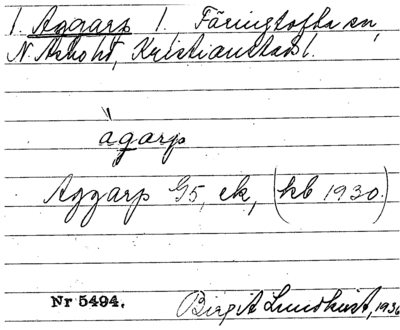 1. Aggarp 1. Färingtofta sn,
N. Åsbo hd, Kristianstad l.
àgarp
Aggarp G5, ek, (kb 1930.)
Nr 5494. Birgit Lundkvist, 1936